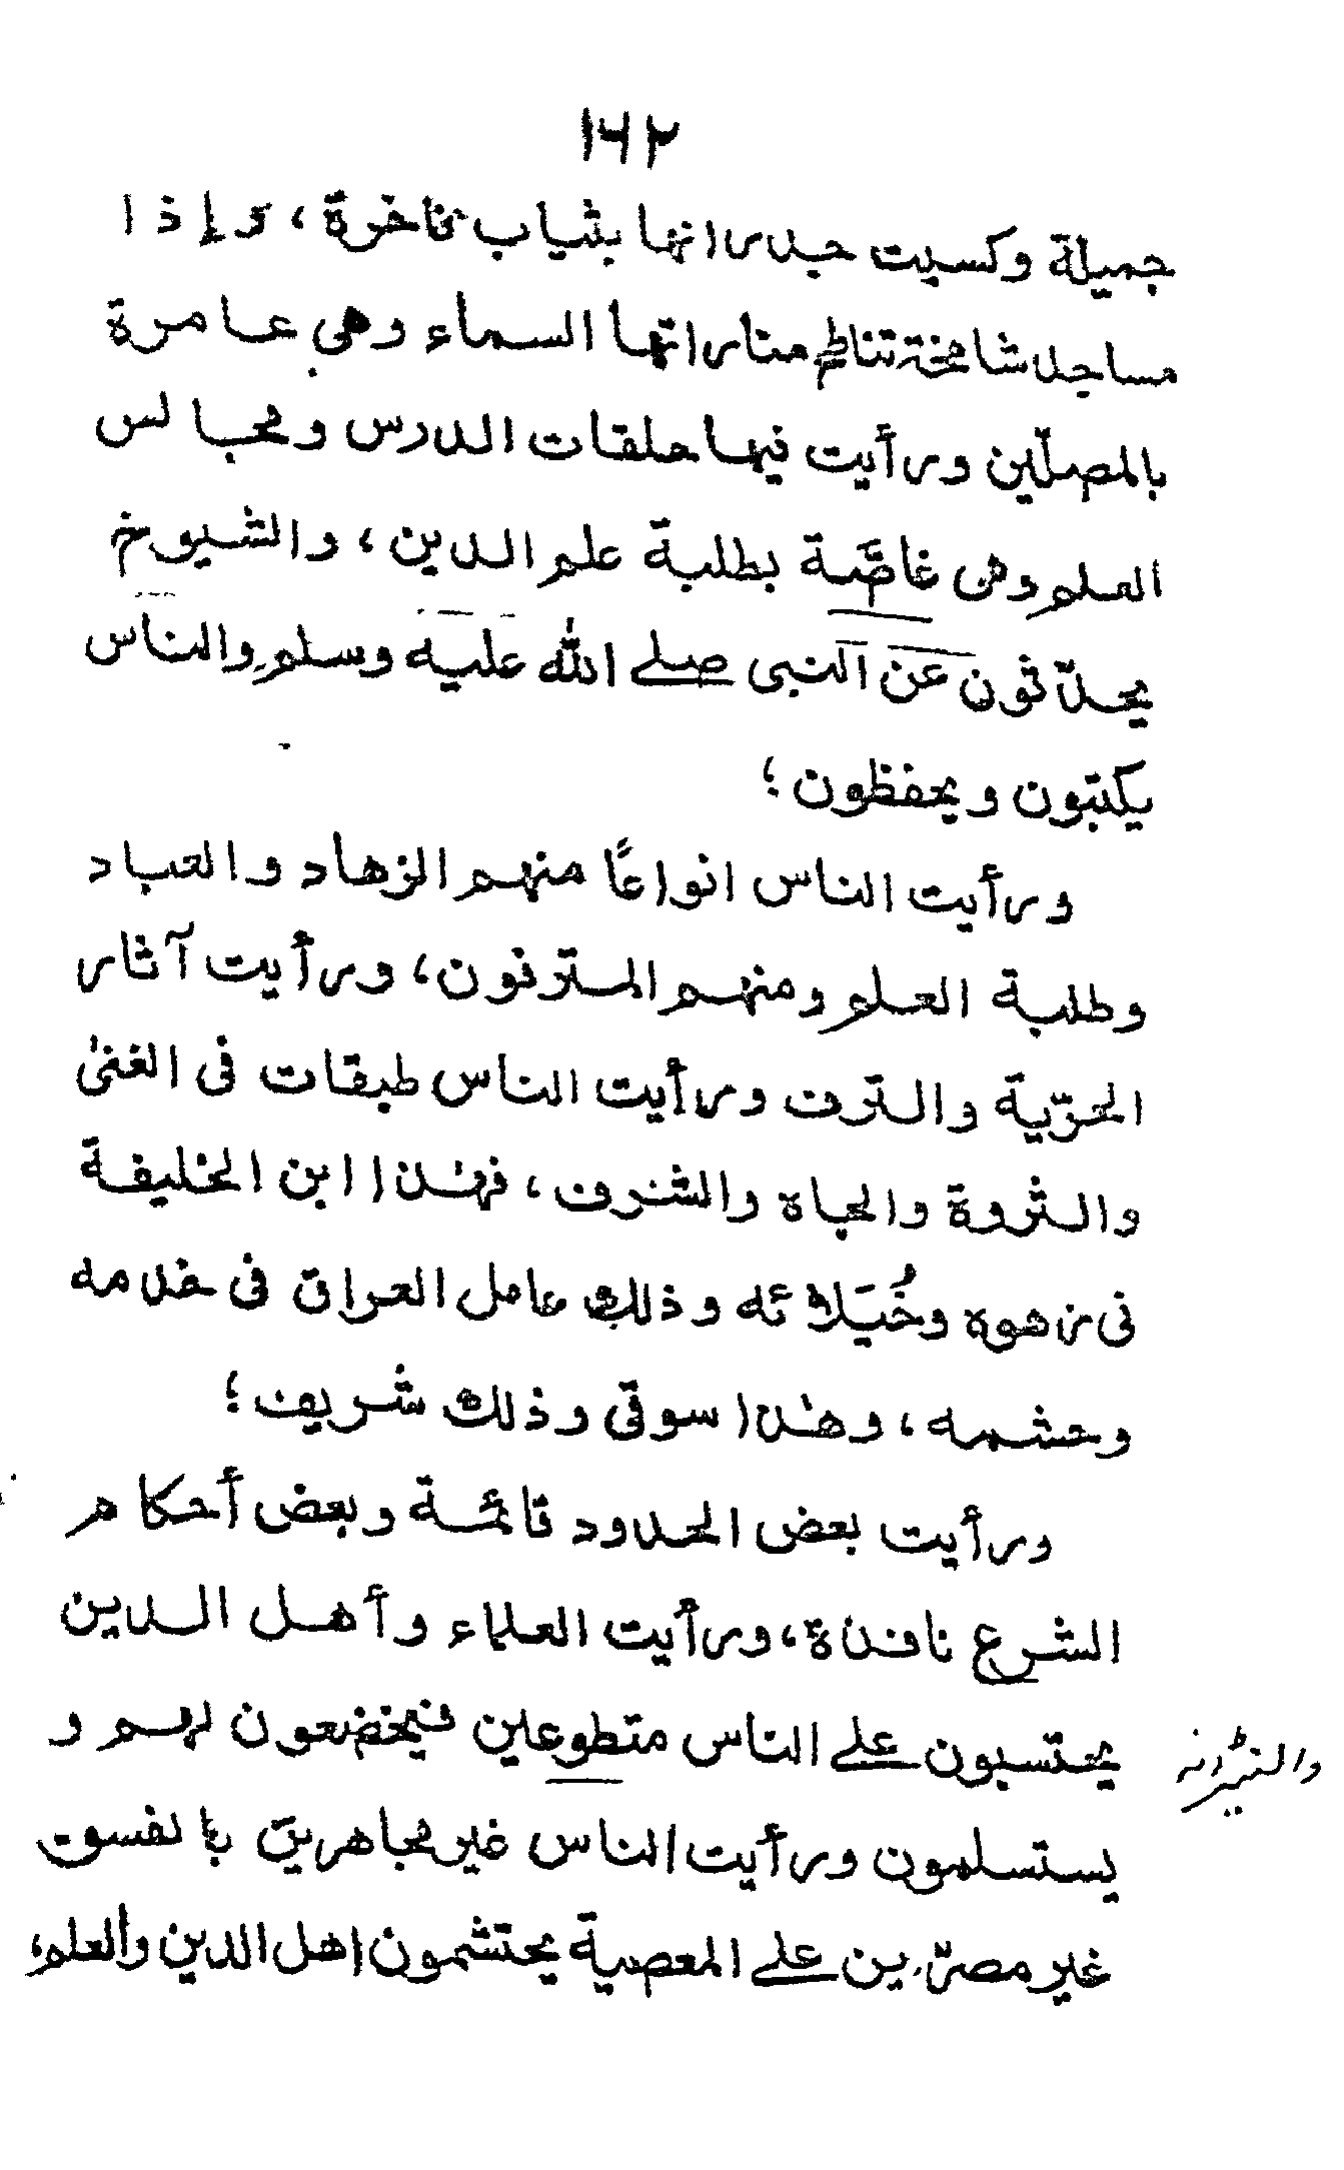 ١٦٢
جميلة وكسيت جدرانها بثياب فاخرة، وإذا
مساجد شامخة تناطح مناراتها السماء وهي عامرة
بالمصلّين ورأيت فيها حلقات الدرس ومجالس
العلم وهى غاصَّة بطلبة علم الدين، والشيوخ
يحدّثون عن النبى صلے الله عليه وسلم والناس
يكتبون ويحفظون؛
ورأيت الناس انواعًا منهم الزهاد والعباد
وطلبة العلم ومنهم المترفون، ورأيت آثار
الحرّية والترف ورأيت الناس طبقات فى الغنىٰ
والثروة والجاه والشرف، فهٰذا ابن الخليفة
فى زهوه وخُيَلائه وذلك عامل العراق فى خدمه
وحشمه، وهٰذا سوقى وذلك شريف؛
ورأيت بعض الحدود قائمة وبعض أحكام
الشرع نافذة، ورأيت العلماء وأهل الدين
يحتسبون علے الناس متطوعين فيخضعون لهم و
يستسلمون ورأيت الناس غير مجاهرين بالفسوق
غير مصرّين علے المعصية يحتشمون اهل الدين والعلم،